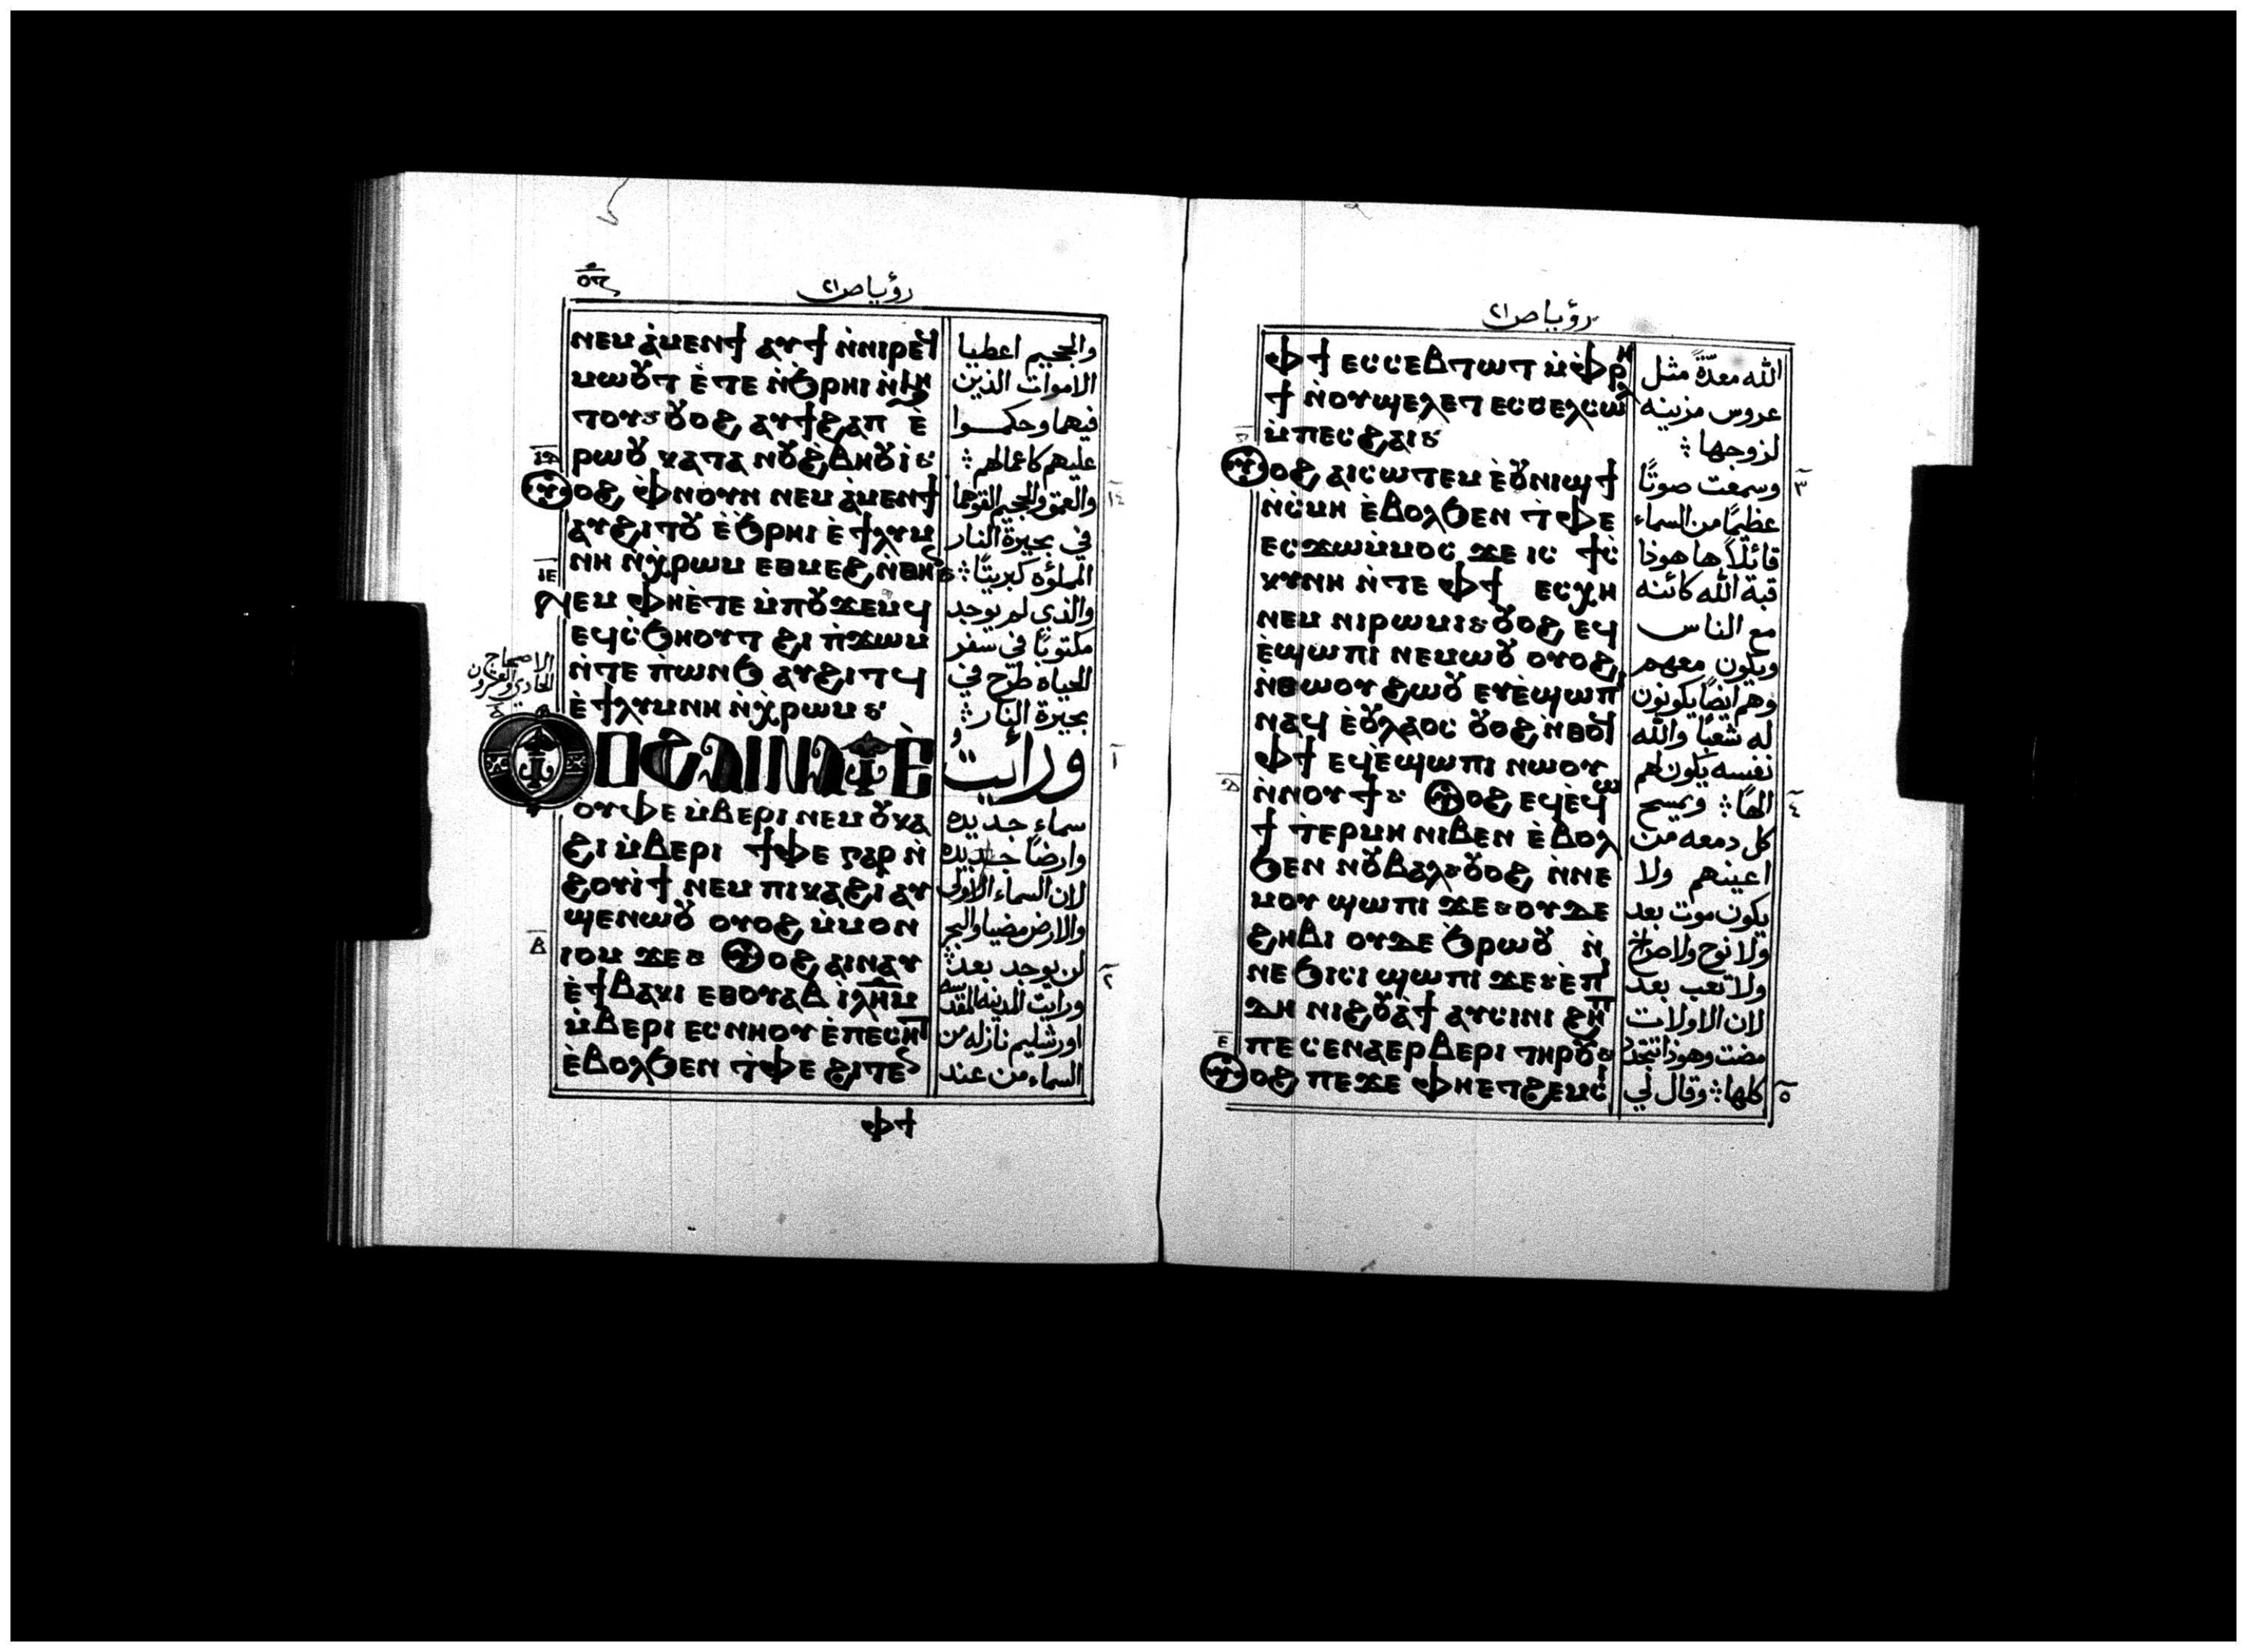 رؤيا ص٢١
ⲛⲉⲙ ⲁ̀ⲙⲉⲛϯ ⲁⲩϯ ⲛ̀ⲛⲓⲣⲉϥ
ⲙⲱⲟⲩⲧ ⲉ̀ⲧⲉ ⲛ̀ϧⲣⲏⲓ ⲛ̀ϧⲏ
ⲧⲟⲩ ⲟⲩⲟϩ ⲁⲩϯϩⲁⲡ ⲉ̀
ⲣⲱⲟⲩ ⲕⲁⲧⲁ ⲛⲟⲩϩⲃⲏⲟⲩⲓ̀
ⲟⲩⲟϩ ⲫ̀ⲛⲟⲩⲛ ⲛⲉⲙ ⲁ̀ⲙⲉⲛϯ
ⲁⲩϩⲓⲧⲟⲩ ⲉ̀ϧⲣⲏⲓ ⲉ̀ϯⲗⲩⲙ
ⲛⲏ ⲛ̀ⲭ̀ⲣⲱⲙ ⲉⲑⲙⲉϩ ⲛ̀ⲑⲏⲛ
ⲛⲉⲙ ⲫⲏⲉ̀ⲧⲉ ⲙ̀ⲡⲟⲩϫⲉⲙϥ
ⲉϥⲥ̀ϧⲏⲟⲩⲧ ϩⲓ ⲡ̀ϫⲱⲙ
ⲛ̀ⲧⲉ ⲡ̀ⲱⲛϧ ⲁⲩϩⲓⲧϥ
ⲉ̀ϯⲗⲩⲙⲛⲏ ⲛ̀ⲭ̀ⲣⲱⲙ
ⲟⲩⲟϩ ⲁⲓⲛⲁⲩ ⲉ̀
ⲟⲩⲫⲉ ⲙ̀ⲃⲉⲣⲓ ⲛⲉⲙ ⲟⲩⲕⲁ
ϩⲓ ⲙ̀ⲃⲉⲣⲓ ϯⲫⲉ ⲅⲁⲣ ⲛ̀
ϩⲟⲩⲓ̀ϯ ⲛⲉⲙ ⲡⲓⲕⲁϩⲓ ⲁⲩ
ϣⲉⲛⲱⲟⲩ ⲟⲩⲟϩ ⲙ̀ⲙⲟⲛ
ⲓⲟⲙ ϫⲉ ⲟⲩⲟϩ ⲁⲓⲛⲁⲩ
ⲉ̀ϯⲃⲁⲕⲓ ⲉⲑⲟⲩⲁⲃ ⲓ̀ⲗⲏⲙ
ⲙ̀ⲃⲉⲣⲓ ⲉⲥⲛⲏⲟⲩ ⲉ̀ⲡⲉⲥⲏⲧ
ⲉ̀ⲃⲟⲗϧⲉⲛ ⲧ̀ⲫⲉ ϩⲓⲧⲉⲛ
ⲫϯ
والجحيم اعطيا
الاموات الذين
فيهما وحكمـوا
عليهم كاعمالهم
١٤ والعمق والجحيم القوهما
في بحيرة النار
المملؤه كبريتًا
والذي لم يوجد
مكتوبًا في سفر
الحياه طرح في
بحيرة النار
الاصحاح
الحادي والعشرون
١ ورأيتُ
سماء جديده
وارضًا جديده
لان السماء الاولى
والارض مضيا والبحر
لن يوجد بعد
٢ ورايت المدينه المقدسه
اورشليم نازله من
السماء من عند
رؤيا ص٢١
ⲫϯ ⲉⲥⲥⲉⲃⲧⲱⲧ ⲙ̀ⲫ̀ⲣⲏ
ϯ ⲛ̀ⲟⲩϣⲉⲗⲉⲧ ⲉⲥⲥⲉⲗⲥⲱⲗ
ⲙ̀ⲡⲉⲥϩⲁⲓ
ⲟⲩⲟϩ ⲁⲓⲥⲱⲧⲉⲙ ⲉ̀ⲟⲩⲛⲓϣϯ
ⲛ̀ⲥⲙⲏ ⲉ̀ⲃⲟⲗϧⲉⲛ ⲧ̀ⲫⲉ
ⲉⲥϫⲱⲙ̀ⲙⲟⲥ ϫⲉ ⲓⲥ ϯⲥ̀
ⲕⲩⲛⲏ ⲛ̀ⲧⲉ ⲫϯ ⲉⲥⲭⲏ
ⲛⲉⲙ ⲛⲓⲣⲱⲙⲓ ⲟⲩⲟϩ ⲉϥ
ⲉ̀ϣⲱⲡⲓ ⲛⲉⲙⲱⲟⲩ ⲟⲩⲟϩ
ⲛ̀ⲑⲱⲟⲩ ϩⲱⲟⲩ ⲉⲩⲉ̀ϣⲱⲡⲓ
ⲛⲁϥ ⲉ̀ⲟⲩⲗⲁⲟⲥ ⲟⲩⲟϩ ⲛ̀ⲑⲟϥ
ⲫϯ ⲉϥⲉ̀ϣⲱⲡⲓ ⲛⲱⲟⲩ
ⲛ̀ⲛⲟⲩϯ ⲟⲩⲟϩ ⲉϥⲉ̀ϥⲱ
ϯ ⲧ̀ⲉⲣⲙⲏ ⲛⲓⲃⲉⲛ ⲉ̀ⲃⲟⲗ
ϧⲉⲛ ⲛⲟⲩⲃⲁⲗ ⲟⲩⲟϩ ⲛ̀ⲛⲉ
ⲙⲟⲩ ϣⲱⲡⲓ ϫⲉ ⲟⲩⲇⲉ
ϩⲏⲃⲓ ⲟⲩⲇⲉ ϧⲣⲱⲟⲩ ⲛ̀
ⲛⲉ ϧⲓⲥⲓ ϣⲱⲡⲓ ϫⲉ ⲉ̀ⲡⲓ
ⲇⲏ ⲛⲓϩⲟⲩⲁ̀ϯ ⲁⲩⲥⲓⲛⲓ ϩⲏⲡ
ⲡⲉ ⲥⲉⲛⲁⲉⲣⲃⲉⲣⲓ ⲧⲏⲣⲟⲩ
ⲟⲩⲟϩ ⲡⲉϫⲉ ⲫⲏⲉⲧϩⲉⲙⲥⲓ
الله معدّةً مثل
عروس مزينه
لزوجها
٣ وسمعت صوتًا
عظيمًا من السماء
قائلًا ها هوذا
قبة الله كائنه
مع الناس
ويكون معهم
وهم ايضًا يكونون
له شعبًا والله
نفسه يكون لهم
٤ الهًا ويمسح
كل دمعه من
اعينهم ولا
يكون موت بعد
ولا نوح ولا صراخ
ولا تعب بعد
لان الاولات
مضت وهوذا تتجدد
٥ كلها وقال لي